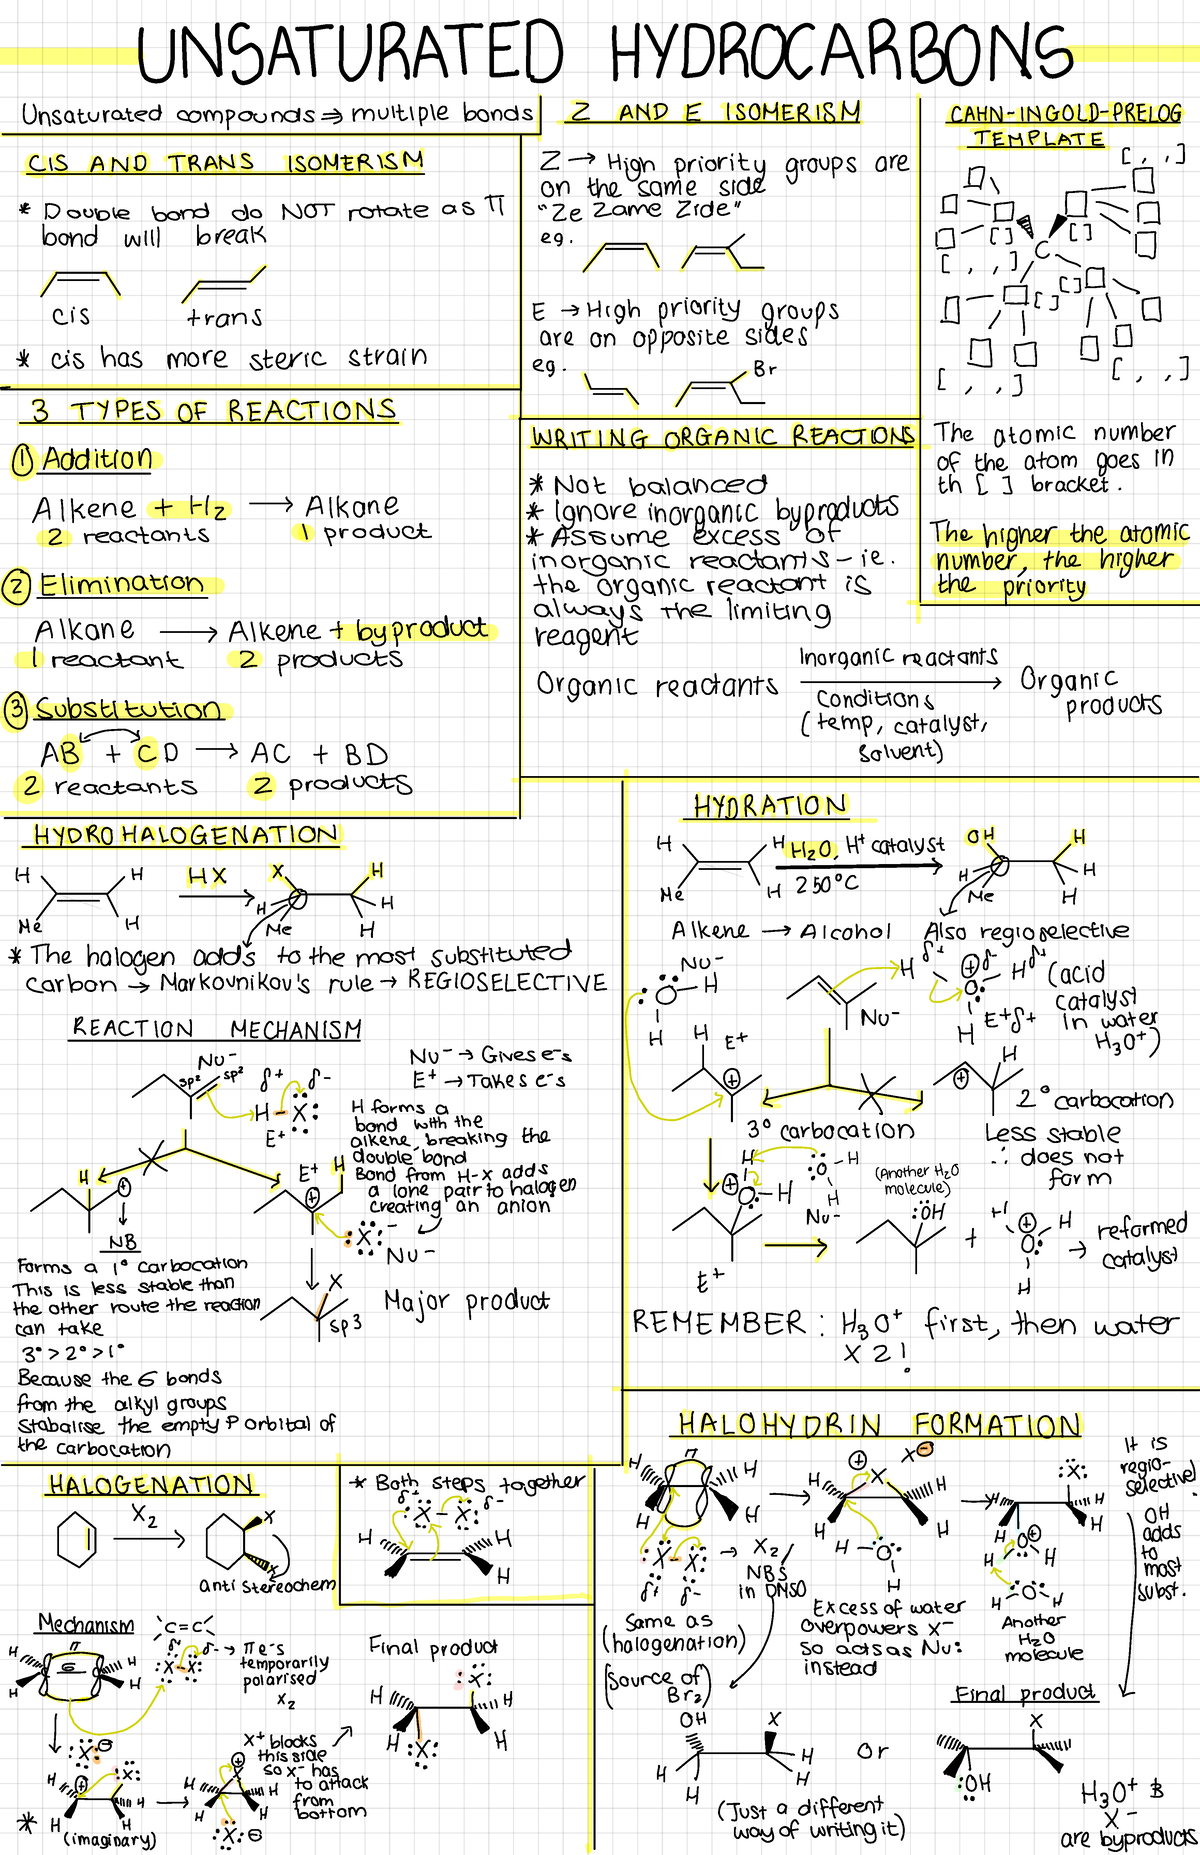 UNSATURATED HYDROCARBONS
Unsaturated compounds ⇒ multiple bonds
CIS AND TRANS ISOMERISM
* Double bond do NOT rotate as π
bond will break
cis
trans
* cis has more steric strain
Z AND E ISOMERISM
Z → High priority groups are
on the same side
"Ze Zame Zide"
eg.
E → High priority groups
are on opposite sides
eg.
Br
CAHN-INGOLD-PRELOG
TEMPLATE
[ , , ]
[ ] [ ]
C
[ , , ]
[ ] [ ]
[ , , ]
[ , , ]
The atomic number
of the atom goes in
th [ ] bracket.
The higher the atomic
number, the higher
the priority
3 TYPES OF REACTIONS
① Addition
Alkene + H₂ → Alkane
2 reactants 1 product
② Elimination
Alkane → Alkene + byproduct
1 reactant 2 products
③ Substitution
AB + CD → AC + BD
2 reactants 2 products
WRITING ORGANIC REACTIONS
* Not balanced
* Ignore inorganic byproducts
* Assume excess of
inorganic reactants - ie.
the organic reactant is
always the limiting
reagent
Organic reactants
Inorganic reactants
→
Conditions
(temp, catalyst,
solvent)
Organic
products
HYDROHALOGENATION
H H HX X H
H H
Me H Me H
* The halogen adds to the most substituted
carbon → Markovnikov's rule → REGIOSELECTIVE
REACTION MECHANISM
Nu⁻
sp² sp²
δ+ δ-
H-X:
E+
Nu⁻ → Gives e⁻s
E+ → Takes e⁻s
H forms a
bond with the
alkene, breaking the
double bond
Bond from H-X adds
a lone pair to halogen
creating an anion
H ⊕
E+ H
⊕
:X:⁻
Nu⁻
NB
Forms a 1° carbocation
This is less stable than
the other route the reaction
can take
3° > 2° > 1°
Because the 6 bonds
from the alkyl groups
stabalise the empty P orbital of
the carbocation
X
sp3
Major product
HYDRATION
H H H₂O, H⁺ catalyst OH H
250°C
Me H H Me H H
Alkene → Alcohol Also regioselective
Nu⁻
:O-H
H
H E+
⊕
Nu⁻
H δ+ ⊕ δ- H δ+
O:
H E+ δ+
(acid
catalyst
in water
H₃O⁺)
H
⊕
2° carbocation
3° carbocation
Less stable
∴ does not
form
H
⊕
O-H
E+
:O-H
H
Nu⁻
(Another H₂O
molecule)
:ÖH
+
H ⊕ H
O:
H
→ reformed
catalyst
REMEMBER : H₃O⁺ first, then water
X 2!
HALOGENATION
X₂
X
X
anti stereochem
* Both steps together
δ+ δ-
:X-X:
H H
H H
Mechanism
C=C
δ+ δ-
:X-X:
→ π e⁻s
temporarily
polarised
X₂
π
6
H H
H H
:X:⊖
⊕ X:
H H
H H
* (imaginary)
X+ blocks
this side
so X⁻ has
to attack
from
bottom
⊕
X
H H
H H
:X:⊖
Final product
:X:
H H
H H
:X:
HALOHYDRIN FORMATION
π
H H
H H
:X-X: → X₂
δ+ δ-
NBS
in DMSO
Same as
(halogenation)
(Source of
Br₂)
⊕ X⊖
X
H H
H H
H-O:
H
Excess of water
overpowers X⁻
so acts as Nu:
instead
:X:
H H
H H
:O⊕
H H
H-O-H
Another
H₂O
molecule
It is
regio-
selective!
OH
adds
to
most
subst.
Final product
OH X
H H
H H
or
X
H
:OH
(Just a different
way of writing it)
H₃O⁺ &
X⁻
are byproducts